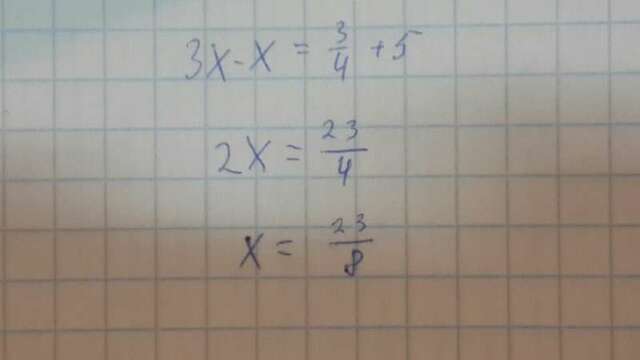 3x - x = 3/4 + 5
2x = 23/4
x = 23/8